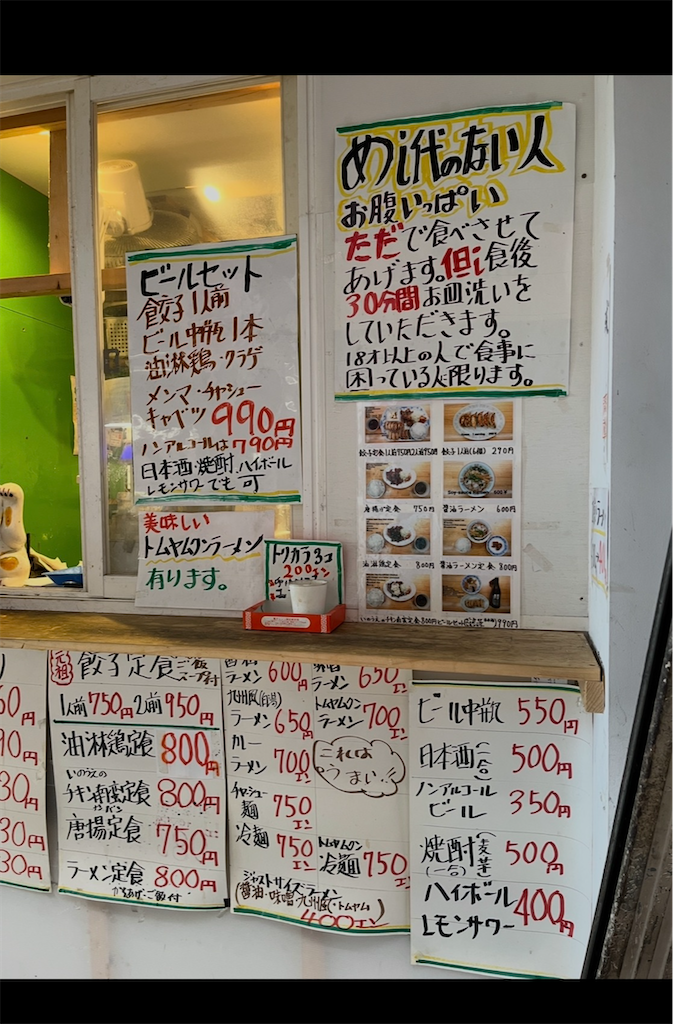 めし代のない人
お腹いっぱい
ただで食べさせて
あげます。但し食後
30分間お皿洗いを
していただきます。
18才以上の人で食事に
困っている人に限ります。
ビールセット
餃子1人前
ビール中瓶1本
油淋鶏・クラゲ
メンマ・チャシュー
キャベツ 990円
ノンアルコールは790円
日本酒・焼酎・ハイボール
レモンサワーでも可
美味しい
トムヤムクンラーメン
有ります。
トリカラ3コ
200エン
餃子定食1人前750円2人前950円
餃子1人前(6個) 290円
唐揚げ定食 750円
醤油ラーメン 600円
油淋鶏定食 800円
醤油ラーメン定食 800円
990円
50円
90円
30円
30円
30円
元祖 餃子定食 ご飯スープ付
1人前750円 2人前950円
油淋鶏定食 800円
いのうえの
チキン南蛮定食 800円
唐揚定食 750円
ラーメン定食 800円
からあげ・ご飯付
ラーメン 600円
九州風(白湯)
ラーメン 650円
カレー
ラーメン 700円
チャシュー
麺 750円
冷麺 750円
味噌
ラーメン 650円
トムヤムクン
ラーメン 700円
これは
うまい!
トムヤムクン
冷麺 750円
ジャストサイズ・ラーメン
(醤油・味噌・九州風・トムヤム)
400エン
ビール中瓶 550円
日本酒(一合) 500円
ノンアルコール
ビール 350円
焼酎(麦・芋)
(一合) 500円
ハイボール
レモンサワー 400円